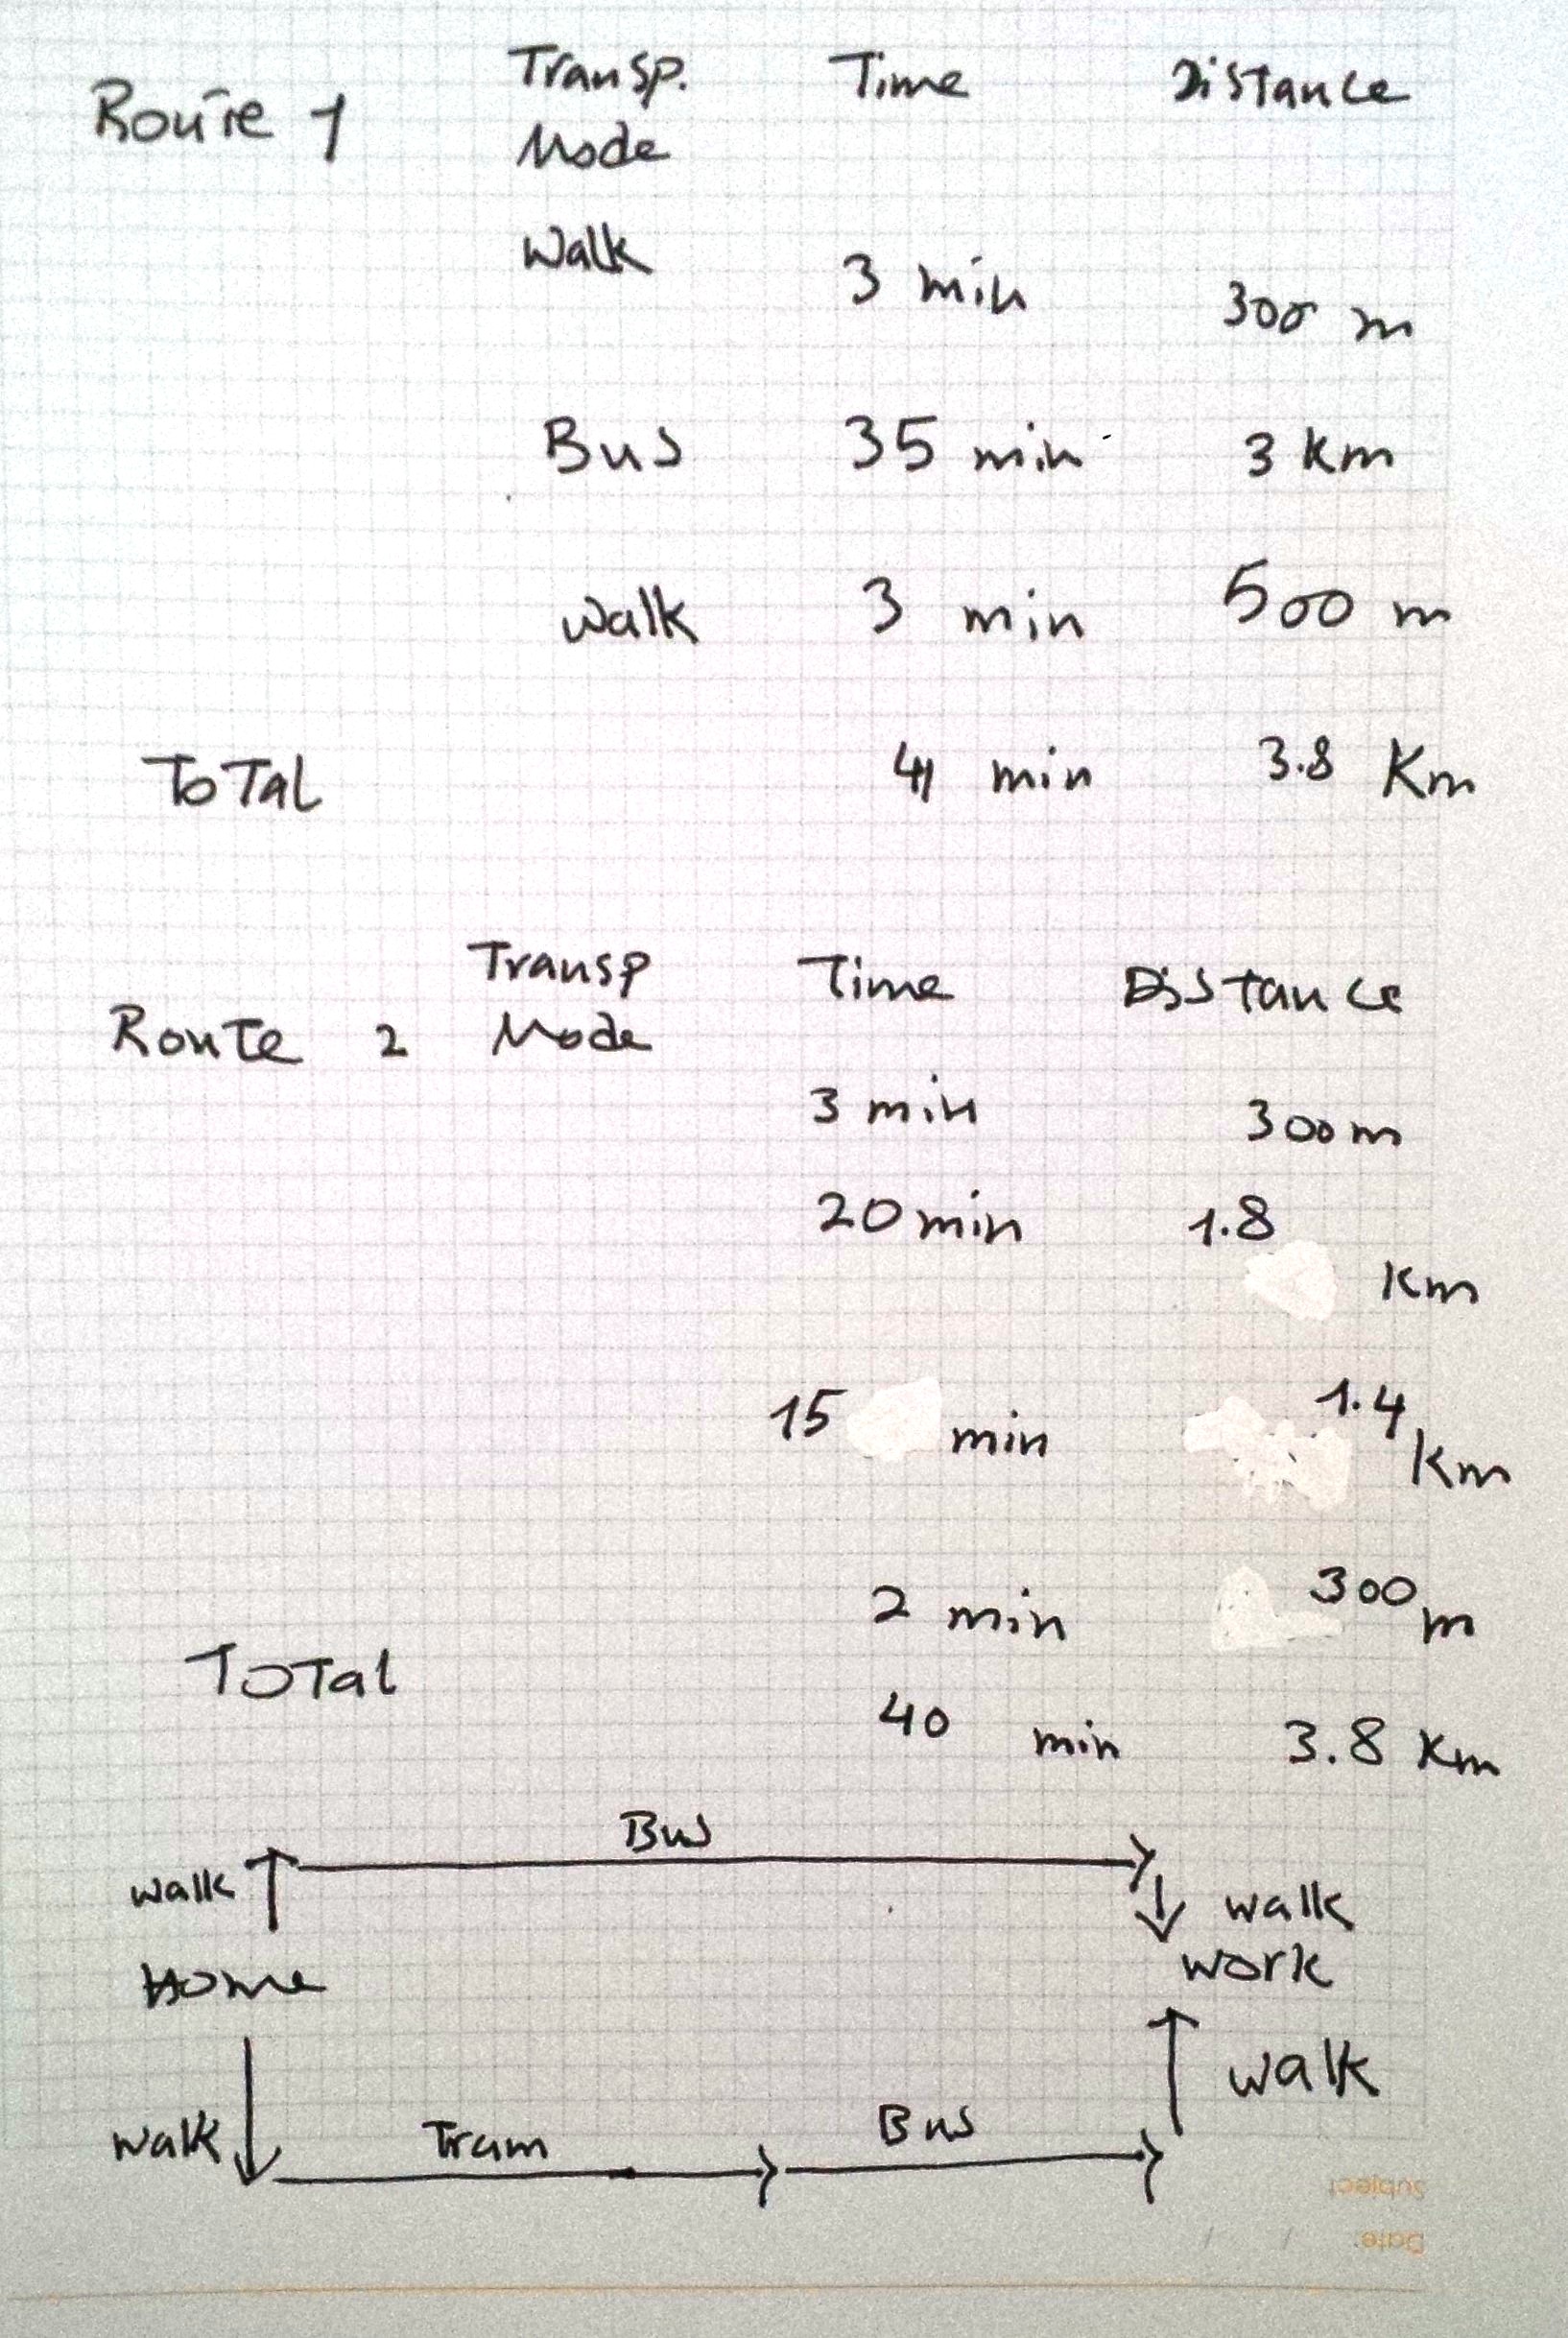 Route 1 Transp. Mode Time Distance
Walk 3 min 300 m
Bus 35 min 3 Km
Walk 3 min 500 m
Total 41 min 3.8 Km
Route 2 Transp Mode Time Distance
3 min 300 m
20 min 1.8 Km
15 min 1.4 Km
2 min 300 m
Total 40 min 3.8 Km
Bus
walk
walk
Home
work
walk
walk
Tram
Bus
Subject
Date: